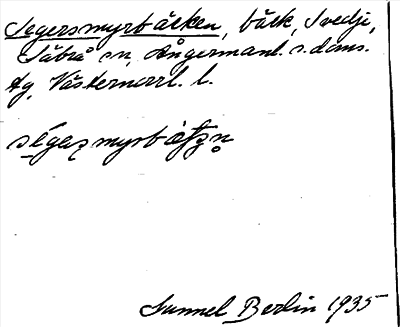 Segersmyrbäcken, bäck, Svedje,
Säbrå sn, Ångermanl. s. doms.
tg, Västernorrl. l.
Sunnel Berlin 1935